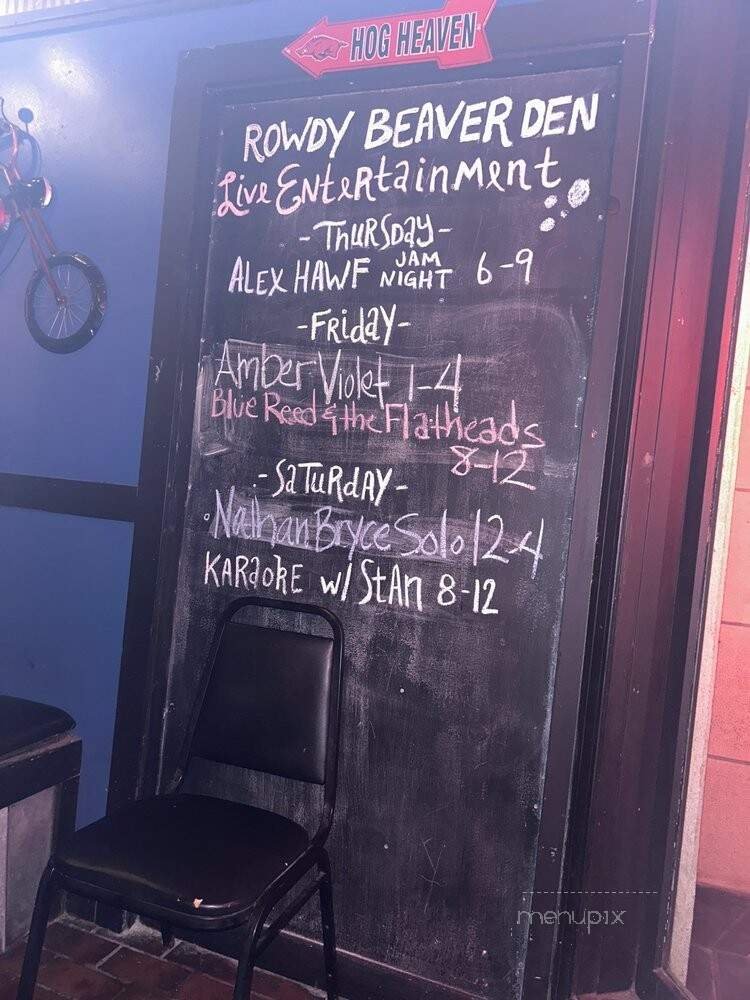 HOG HEAVEN
ROWDY BEAVER DEN
Live EntertainMent
- Thursday -
ALEX HAWF JAM NIGHT 6-9
- Friday -
Amber Violet 1-4
Blue Reed & the Flatheads
8-12
- Saturday -
Nathan Bryce Solo 12-4
KARaokE w/ StAn 8-12
menupix